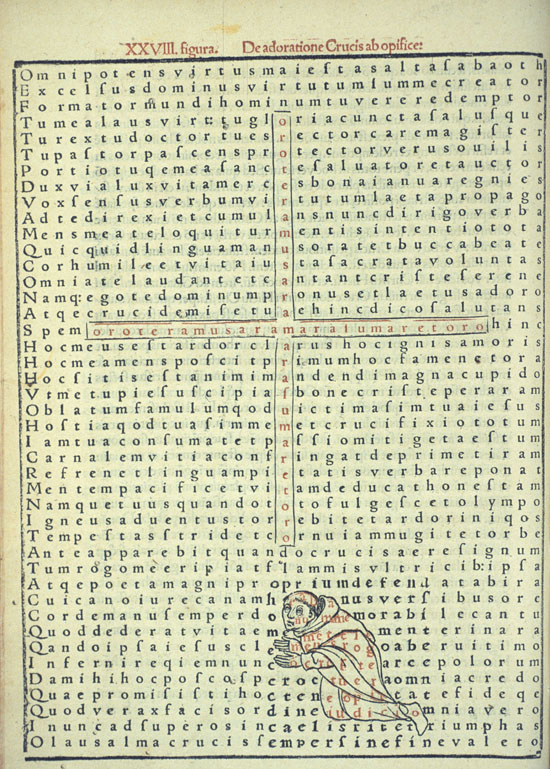 XXVIII. figura. De adoratione Crucis ab opifice:
Omnipotensvirtusmaiestasaltasabaoth
Excelsusdominusvirtutumsummecreator
Formatormundihominumtuvereredemptor
Tumealausvirtustugloriacunctasalusque
Turextudoctortuesrectorcaremagister
Tupastorpascensprotectorverusouilis
Portiotuqemeasanctesaluatoretauctor
Duxvialuxvitamercesbonaianuaregnies
Voxsensusverbumvirtutumlaetapropago
Adtedirexietcumulansnuncdirigoverba
Mensmeateloquiturmentisintentiotota
Quicquidlinguamanusoratetbuccabeate
Corhumileetvitaiustasacratavoluntas
Omniatelaudantetcantantcristeserene
Namq:egotedominumpronusetlaetusadoro
Atqecrucidemisetuaehincdicosalutans
Spemoroteramusaramaralumaretorohinc
Hocmeusestardorclarushocignisamoris
Hocmeamensposcitprimumhocfamenetora
Hocsitisestanimimandendimagnacupido
Vtmetupiesuscipiasbonecristeperaram
Oblatumfamulumqodvictimasimtuaiesus
Hostiaqodtuasimmetcrucifixiototum
Iamtuaconsumatetpassiomitigetaestum
Carnalemvitiaconfringatdeprimetiram
Refrenetlinguampietatisverbareponat
Mentempacificetvitamdeducathonestam
Namquetuusquandotofulgescetolympo
Igneusaduentustorrebitetardoriniqos
Tempestasstridetcornuiammugitetorbe
Anteapparebitquandocrucisaeresignum
Tumrogomeeripiatflammisvltricib:ipsa
Atqepoetamagnipropriumdefendatabira
Cuicanoiurecanamh anusversibusore
Cordemanusemperdo morabilecantu
Quoddederatvitaem menterinara
Qandoipsaiesuscle rogoaberuitimo
Infernireqiemnunc arceepolorum
Damihihocposcosperoetueroomniacredo
Quaepromisistihoctene opietatefideqe
Quodveraxfacisordineiudicoomniavero
Inuncadsuperosincaelistriteriumphas
Olausalmacrucissempersinefinevaleto